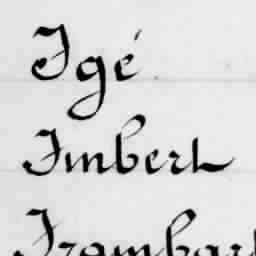 Igé
Imbert